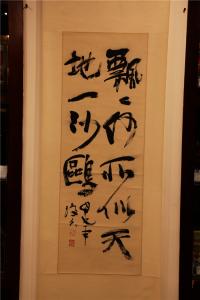 飄々何所似天
地一沙鷗